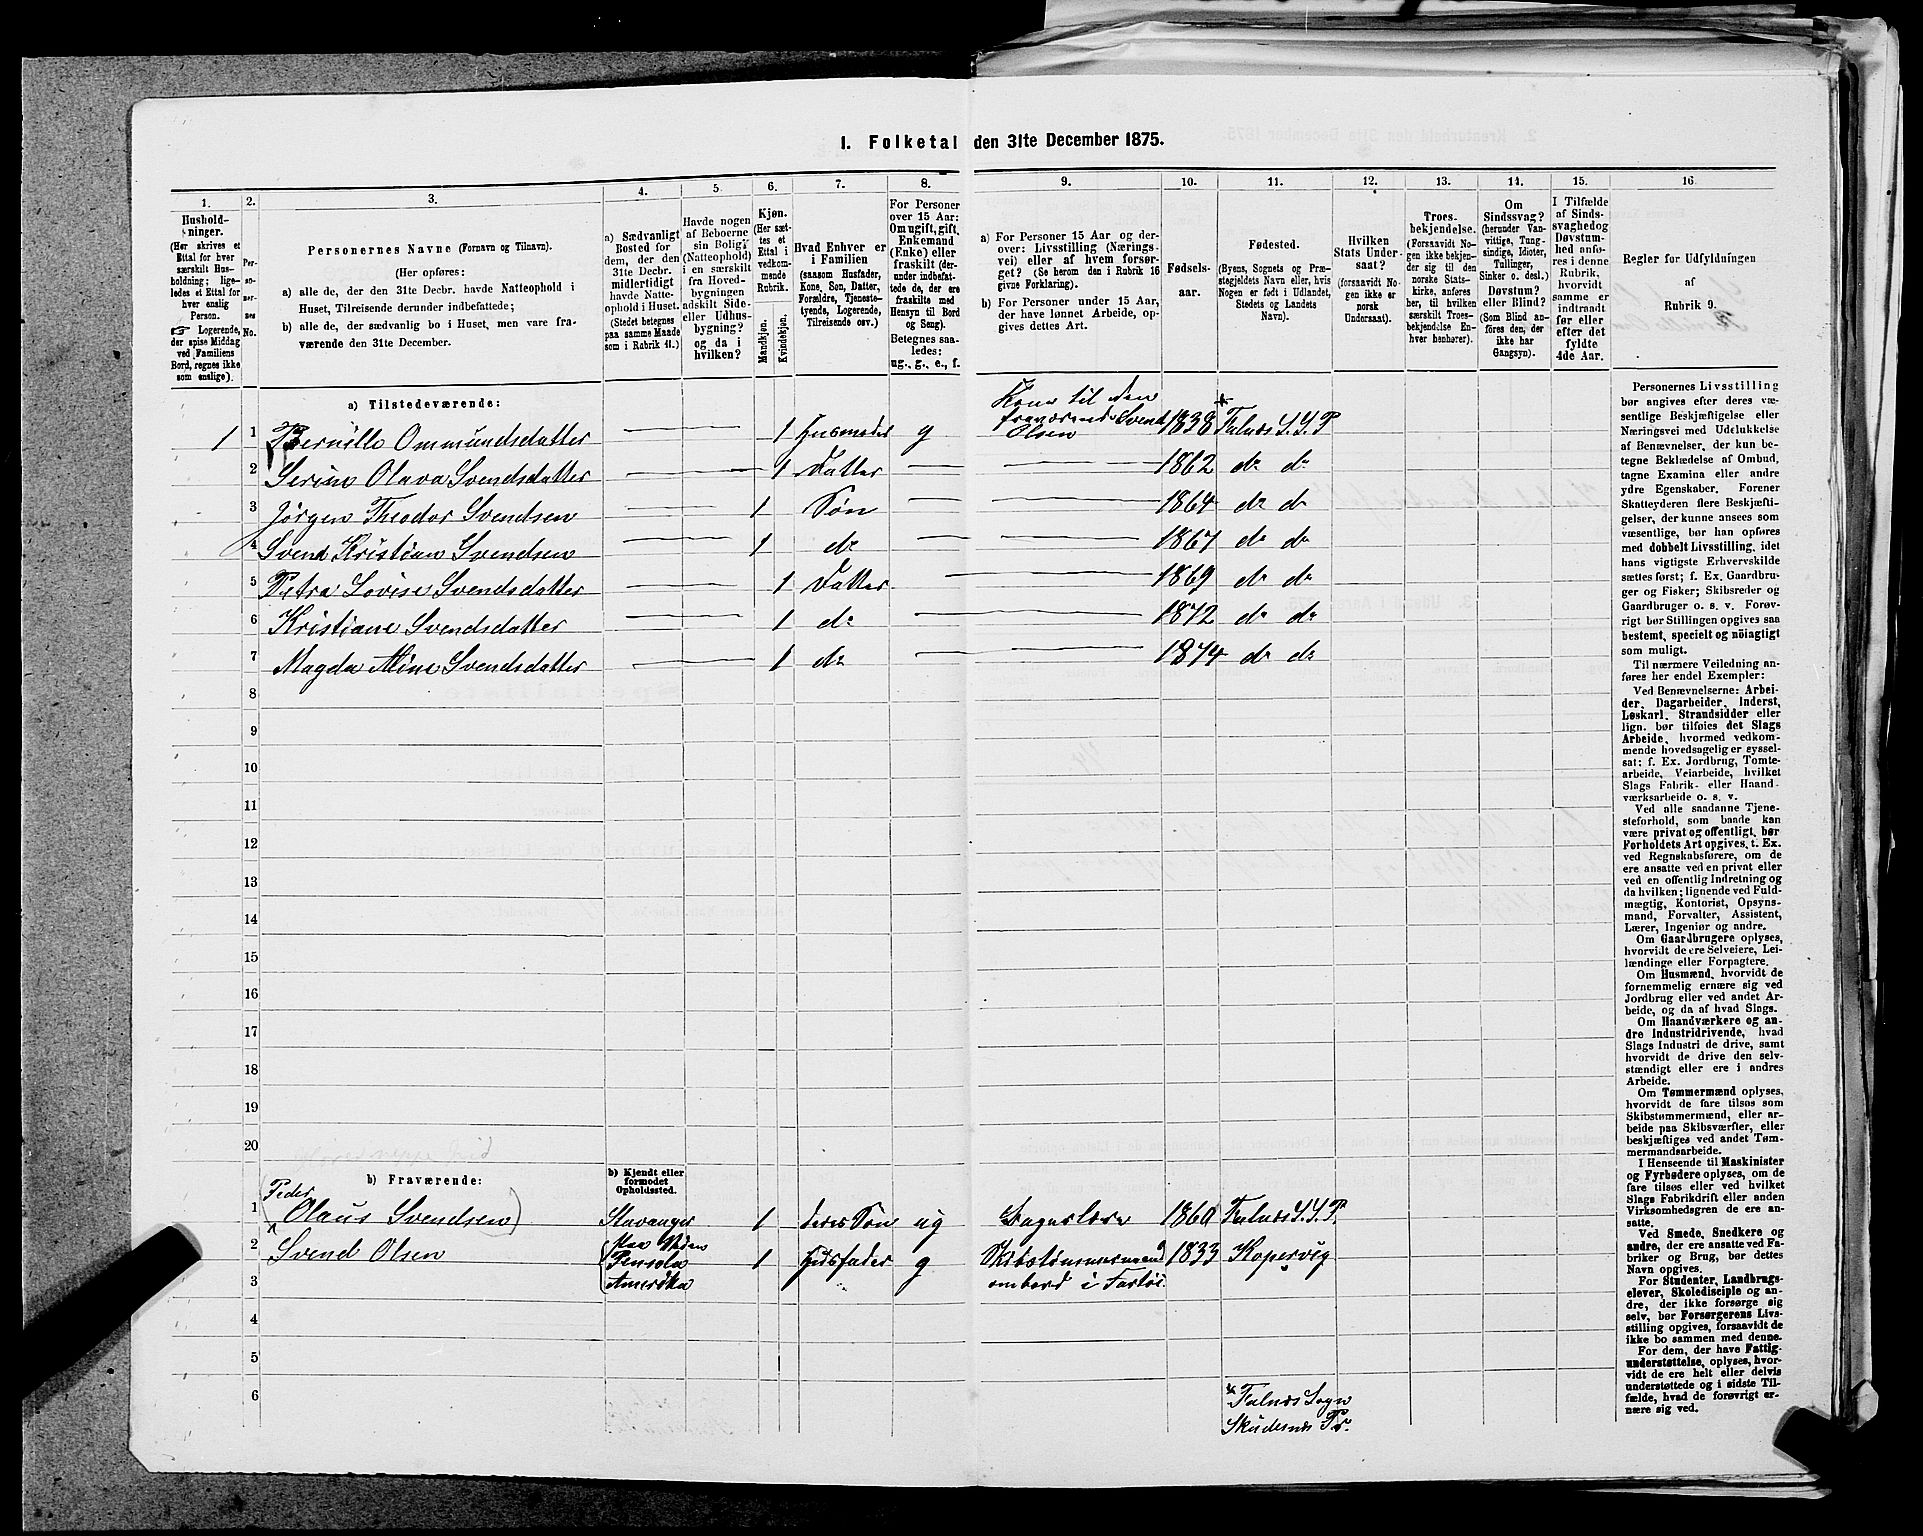 1. Folketal den 31te December 1875.
1. 2. 3. 4. 5. 6. 7. 8. 9. 10. 11. 12. 13. 14. 15. 16.
Hushold-
ninger.
(Her skrives et
Ettal for hver
særskilt Hus-
holdning; lige-
ledes et Ettal for
hver enslig
Person.
Logerende,
der spise Middag
ved Familiens
Bord, regnes ikke
som enslige).
Per-
so-
ner-
nes
No.
Personernes Navne (Fornavn og Tilnavn).
(Her opføres:
a) alle de, der den 31te Decbr. havde Natteophold i
Huset, Tilreisende derunder indbefattede;
b) alle de, der sædvanlig bo i Huset, men vare fra-
værende den 31te December.
a) Sædvanligt
Bosted for
dem, der den
31te Decbr.
midlertidigt
havde Natte-
ophold i Huset.
(Stedet betegnes
paa samme Maade
som i Rubrik 11.)
Havde nogen
af Beboerne
sin Bolig
(Natteophold)
i en særskilt
fra Hoved-
bygningen
adskilt Side-
eller Udhus-
bygning?
og da i
hvilken?
Kjøn.
(Her sæt-
tes et
Ettal i
vedkom-
mende
Rubrik.
Mandkjøn.
Kvindekjøn.
Hvad Enhver er
i Familien
(saasom Husfader,
Kone, Søn, Datter,
Forældre, Tjeneste-
tyende, Logerende,
Tilreisende osv.)
For Personer
over 15 Aar:
Om ugift, gift,
Enkemand
(Enke) eller
fraskilt (der-
under indbefat-
tede de, der ere
fraskilte med
Hensyn til Bord
og Seng).
Betegnes saa-
ledes:
ug., g., e., f.
a) For Personer 15 Aar og der-
over: Livsstilling (Nærings-
vei) eller af hvem forsør-
get? (Se herom den i Rubrik 16
givne Forklaring).
b) For Personer under 15 Aar,
der have lønnet Arbeide, op-
gives dettes Art.
Fødsels-
aar.
Fødested.
(Byens, Sognets og Præ-
stegjeldets Navn eller, hvis
Nogen er født i Udlandet,
Stedets og Landets
Navn).
Hvilken
Stats Under-
saat?
(forsaavidt No-
gen ikke er
norsk
Undersaat).
Troes-
bekjendelse.
(Forsaavidt No-
gen ikke bekjen-
der sig til den
norske Stats-
kirke, anføres
her, til hvilken
særskilt Troes-
bekjendelse En-
hver henhører).
Om
Sindssvag?
(herunder Van-
vittige, Tung-
sindige, Idioter,
Tullinger,
Sinker o. desl.)
Døvstum?
eller Blind?
(Som Blind an-
føres den, der
ikke har
Gangsyn).
I Tilfælde
af Sinds-
svaghed og
Døvstum-
hed anfø-
res i denne
Rubrik,
hvorvidt
samme er
indtraadt
før eller
efter det
fyldte
4de Aar.
Regler for Udfyldningen
af
Rubrik 9.
a) Tilstedeværende:
Kone til den
fraværende Svend
1 1 Bernille Ommundsdatter 1 Husmoder g Olsen 1838 * Falnæs S. S. P
2 Serine Olava Svendsdatter 1 Datter 1862 do do
3 Jørgen Theodor Svendsen 1 Søn 1864 do do
4 Svend Kristian Svendsen 1 do 1867 do do
5 Petra Lovise Svendsdatter 1 Datter 1869 do do
6 Kristiane Svendsdatter 1 do 1872 do do
7 Magda Aline Svendsdatter 1 do 1874 do do
8
9
10
11
12
13
14
15
16
17
18
19
20
b) Fraværende:
b) Kjendt eller
formodet
Opholdssted.
Peder
1 Olaus Svendsen Stavanger 1 deres Søn ug 1860 Falnæs S. S. P.
2 Svend Olsen Pensola 1 Husfader g Skibstømmermand 1833 Kopervig
3 Amerika ombord i Fartøi
4
5
6
* Falnæs Sogn
Skudesnæs Pr.
Personernes Livsstilling
bør angives efter deres væ-
sentlige Beskjæftigelse eller
Næringsvei med Udelukkelse
af Benævnelser, der kun be-
tegne Beklædelse af Ombud,
tagne Examina eller andre
ydre Egenskaber. Forener
Skatteyderen flere Beskjæfti-
gelser, der kunne ansees som
væsentlige, bør han opføres
med dobbelt Livsstilling, idet
hans vigtigste Erhvervskilde
sættes først; f. Ex. Gaardbru-
ger og Fisker; Skibsreder og
Gaardbruger o. s. v. Forøv-
rigt bør Stillingen opgives saa
bestemt, specielt og nöiagtigt
som muligt.
Til nærmere Veiledning an-
føres her endel Exempler:
Ved Benævnelserne: Arbei-
der, Dagarbeider, Inderst,
Løskarl, Strandsidder eller
lign. bør tilføies det Slags
Arbeide, hvormed vedkom-
mende hovedsagelig er syssel-
sat; f. Ex. Jordbrug, Tomte-
arbeide, Veiarbeide, hvilket
Slags Fabrik- eller Haand-
værksarbeide o. s. v.
Ved alle saadanne Tjene-
steforhold, som baade kan
være privat og offentligt, bør
Forholdets Art opgives, t. Ex.
ved Regnskabsførere, om de
ere ansatte ved en privat eller
ved en offentlig Indretning og
da hvilken; lignende ved Fuld-
mægtig, Kontorist, Opsyns-
mand, Forvalter, Assistent,
Lærer, Ingeniør og andre.
Om Gaardbrugere oplyses,
hvorvidt de ere Selveiere, Lei-
lændinge eller Forpagtere.
Om Husmænd, hvorvidt de
fornemmelig ernære sig ved
Jordbrug eller ved andet Ar-
beide, og da af hvad Slags.
Om Haandværkere og an-
dre Industridrivende, hvad
Slags Industri de drive, samt
hvorvidt de drive den selv-
stændigt eller ere i andres
Arbeide.
Om Tømmermænd oplyses,
hvorvidt de fare tilsøs som
Skibstømmermænd, eller ar-
beide paa Skibsværfter, eller
beskjæftiges ved andet Tøm-
mermandsarbeide.
I Henseende til Maskinister
og Fyrbødere oplyses, om de
fare tilsøs eller ved hvilket
Slags Fabrikdrift eller anden
Virksomhedsgren de ere an-
satte.
Ved Smede, Snedkere og
andre, der ere ansatte ved Fa-
briker og Brug, bør dettes
Navn opgives.
For Studenter, Landbrugs-
elever, Skoledisciple og an-
dre, der ikke forsørge sig
selv, bør Forsørgerens Livs-
stilling opgives, forsaavidt de
ikke bo sammen med denne.
For dem, der have Fattig-
understøttelse, oplyses, hvor-
vidt de ere helt eller delvis
understøttede og i sidste Til-
fælde, hvad de forøvrigt er-
nære sig ved.